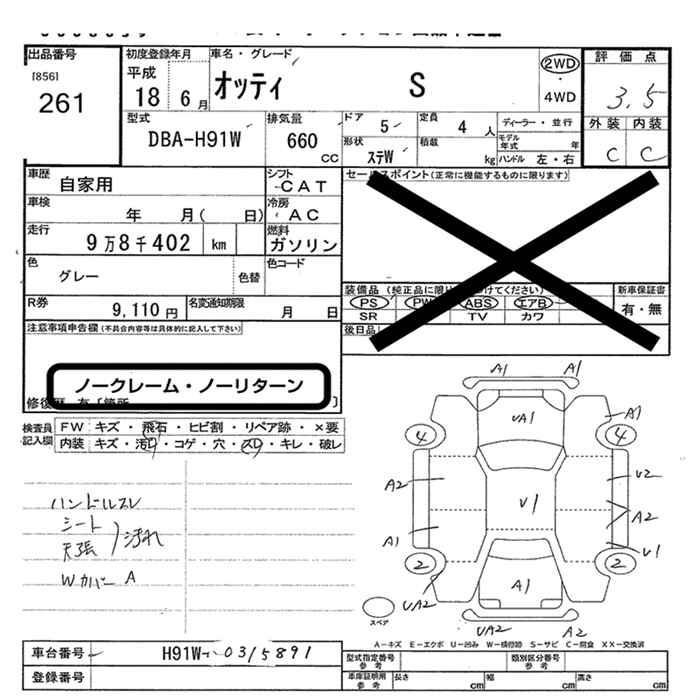 出品番号 初度登録年月 車名・グレード 2WD 評価点
[856] 平成 オッティ S ・ 3.5
261 18 6月 4WD
外装 内装
型式 排気量 ドア 5 定員 4人 ディーラー・並行 C C
DBA-H91W 660 CC 形状 ステW 積載 kg モデル年式 年
ハンドル 左・右
車歴 自家用 シフト CAT セールスポイント(正常に機能するものに限ります)
車検 年 月( 日) 冷房 AC
走行 9万8千402 km 燃料 ガソリン
色 グレー 色替 色コード
装備品(純正品に限り けてください) 新車保証書
R券 9,110円 名変通知期限 月 日 PS PW ABS エアB 有・無
SR TV カワ
注意事項申告欄(不具合内容等は具体的に記入して下さい) 後日品
ノークレーム・ノーリターン
修復歴 有〔箇所 〕
検査員記入欄 FW キズ・飛石・ヒビ割・リペア跡・×要
内装 キズ・汚れ・コゲ・穴・スレ・キレ・破レ
ハンドルスレ
シート
天張 汚れ
Wカバー A
A1 A1
UA1 A1
4 4
A2 V2
V1 A2
A1 V1
2 2
A1
UA2 UA2 A2
スペア
A-キズ E-エクボ U-凹み W-補修跡 S-サビ C-腐食 XX-交換済
車台番号 H91W-0315891 型式指定番号 参考 類別区分番号 参考
登録番号 車庫証明用 参考 長さ cm 幅 cm 高さ cm